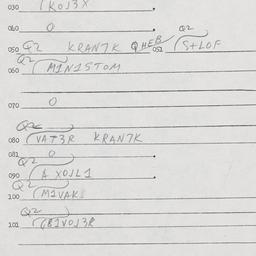 030 KOJ3X
040 O
050 Q2 KRANTK QHEB 051 Q2 S+LOF
060 Q2 M1N1STOM
070 O
080 Q2 VAT3R KRANTK
081 O
090 Q2 A XOJL1
100 Q2 M1VAK
101 Q2 B1VOJ3R